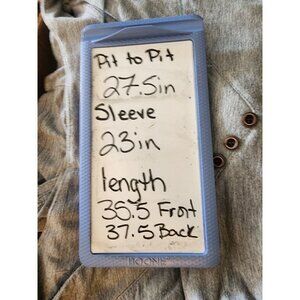 Pit to Pit
27.5in
Sleeve
23in
length
35.5 Front
37.5 Back